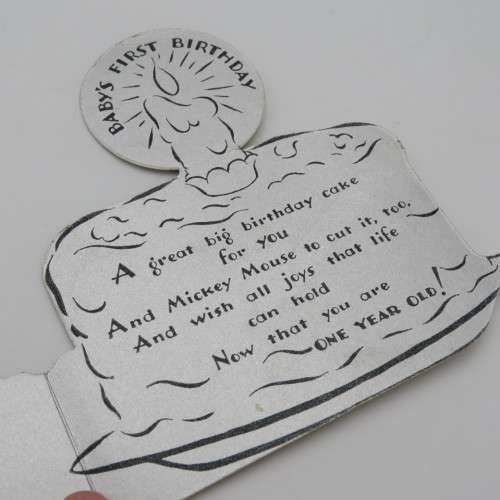 BABY'S FIRST BIRTHDAY
A great big birthday cake
for you
And Mickey Mouse to cut it, too,
And wish all joys that life
can hold
Now that you are
ONE YEAR OLD!